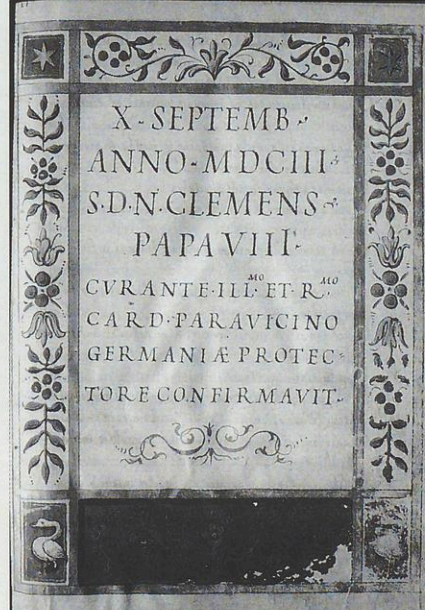 X · SEPTEMB ·
ANNO · MDCIII ·
S·D·N·CLEMENS ·
PAPA VIII ·
CVRANTE·ILL.MO ET·R.MO
CARD·PARAVICINO
GERMANIÆ PROTEC-
TORE CONFIRMAVIT ·